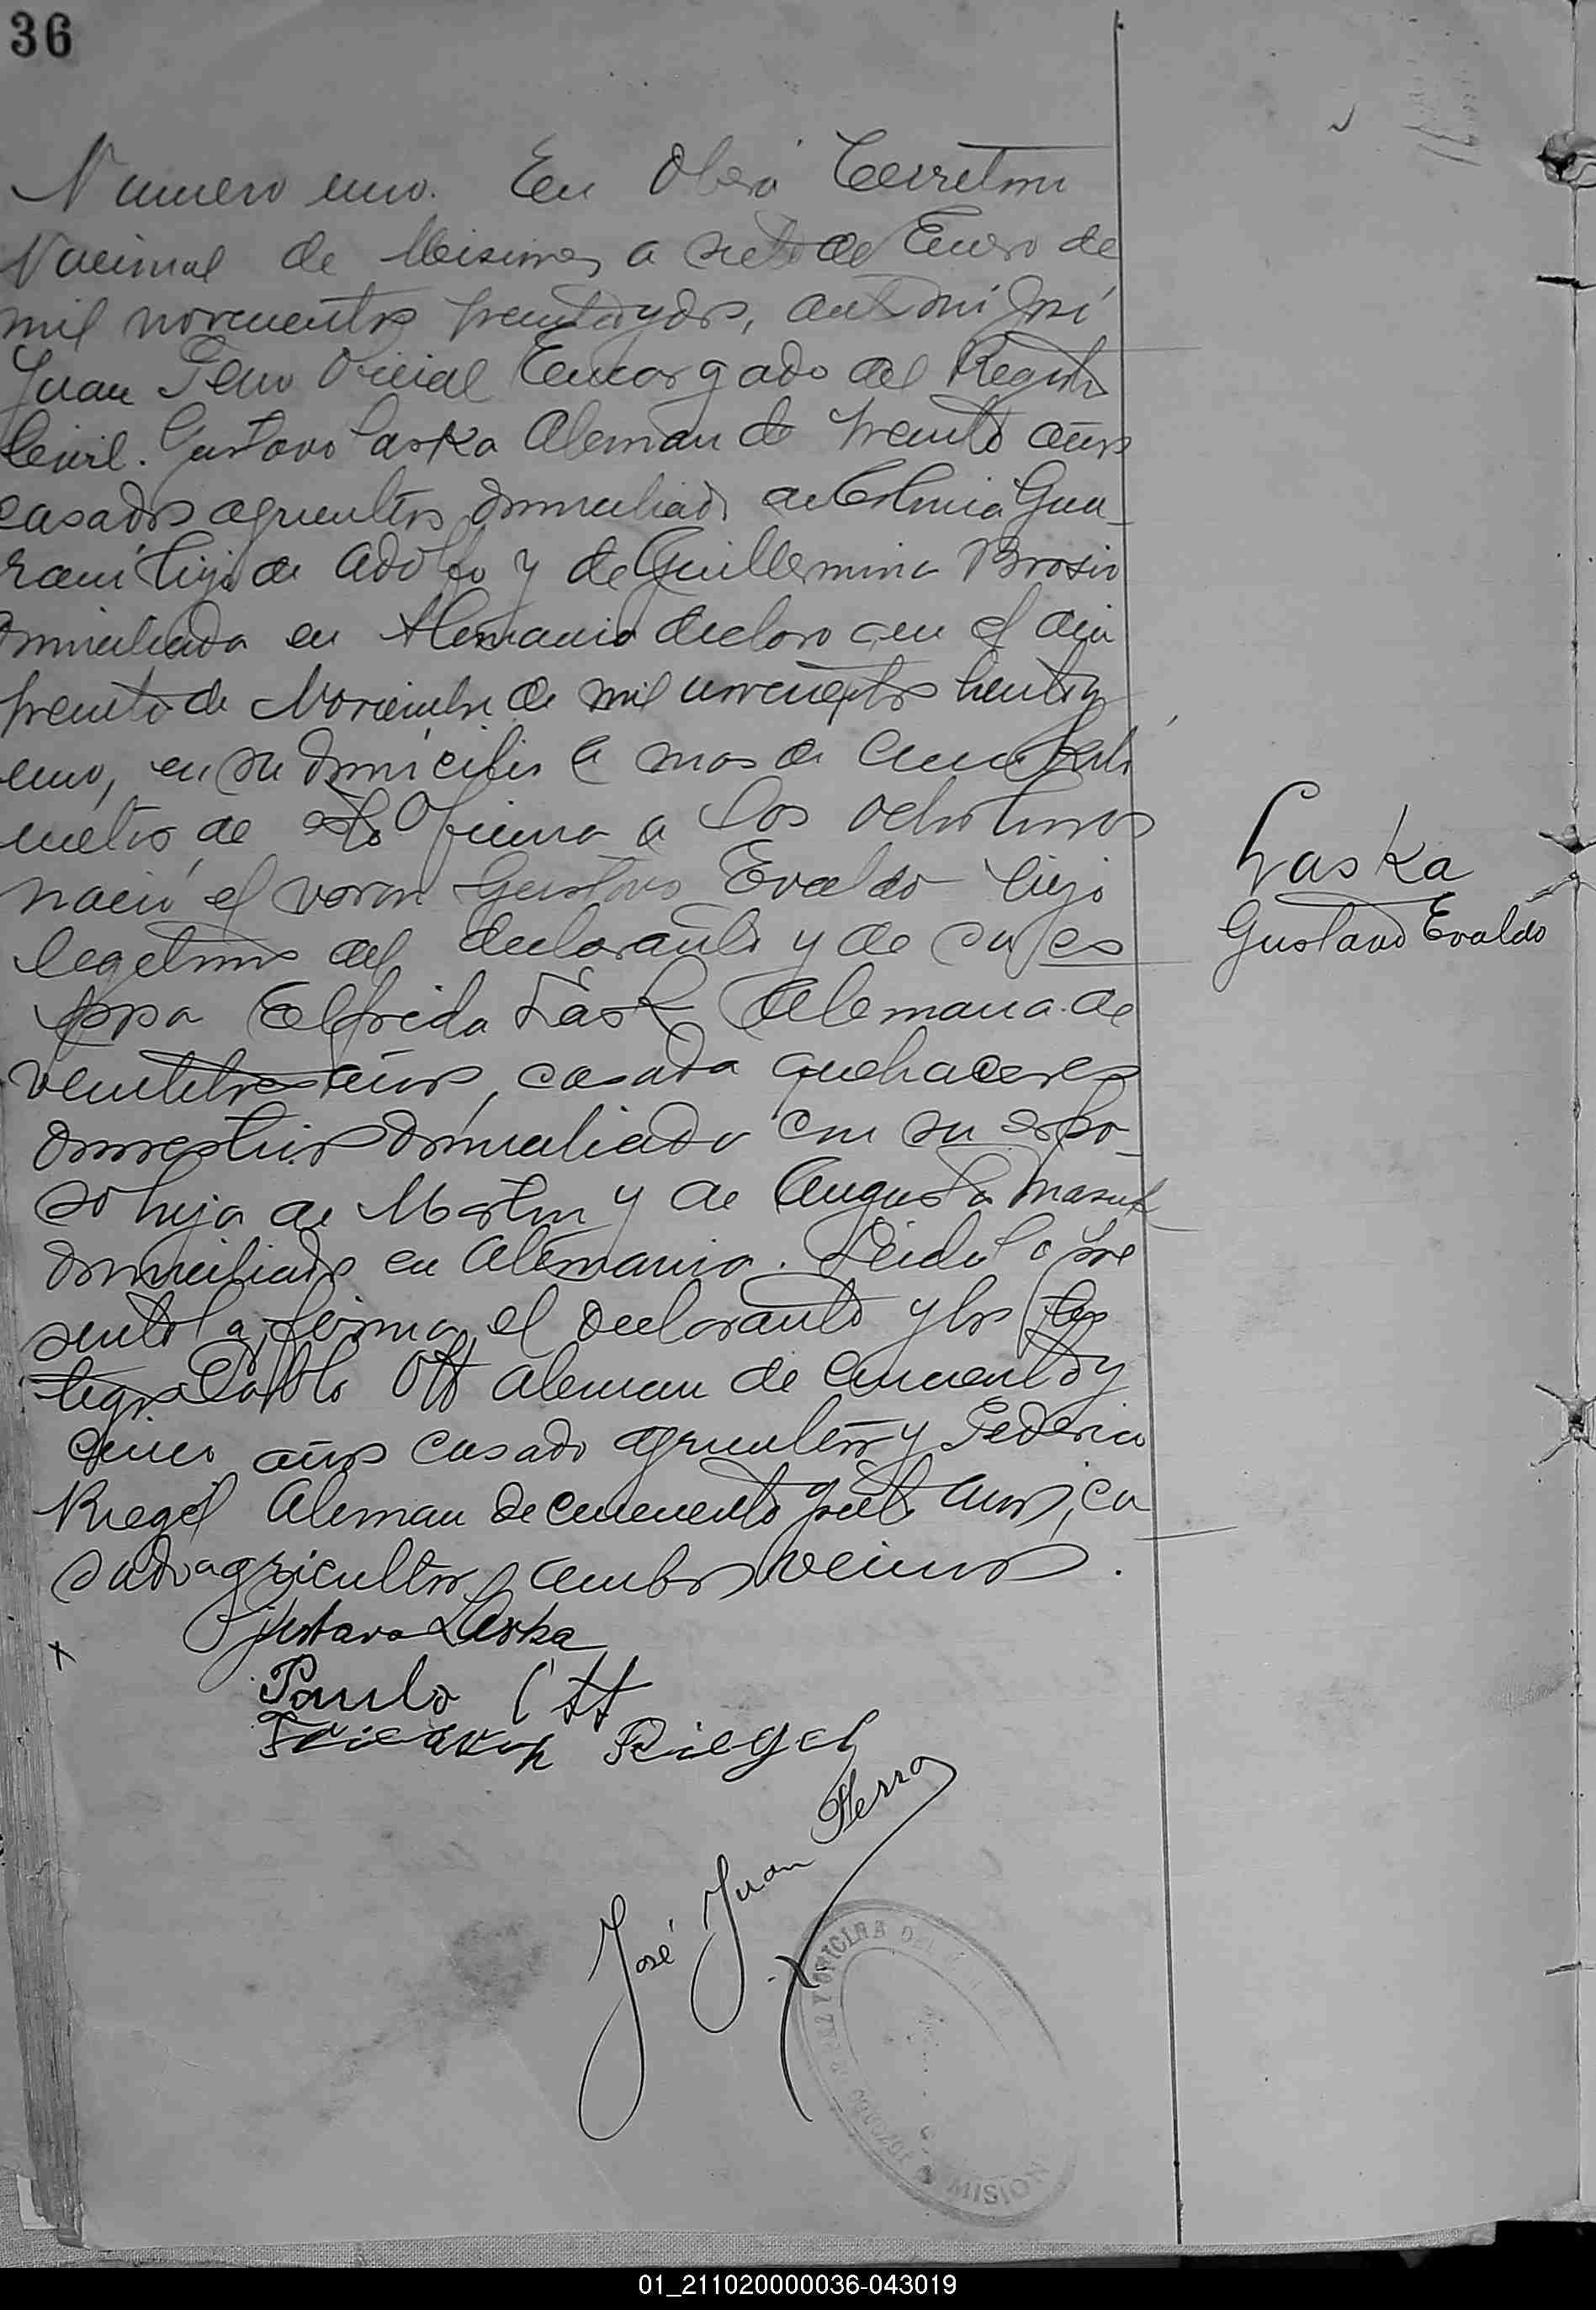 36
Numero uno. En Oberá Territorio
Nacional de Misiones a siete de Enero de
mil novecientos treinta y dos, ante mi José
Juan Oficial Encargado del Registro
Civil. Gustavo Laska Aleman de treinta años
casado agricultor domiciliado en Colonia Gua-
raní hijo de Adolfo y de Guillermina Brosio
domiciliada en Alemania declaro que el dia
treinta de Noviembre de mil novecientos treinta y
uno, en su domicilio a mas de cinco kiló
metros de esta Oficina a las ocho horas
nació el varon Gustavo Evaldo hijo
legitimo del declarante y de su es
posa Elfrida Alemana de
veintitres años, casada quehaceres
domesticos domiciliada con su espo-
so hija de Martin y de Augusta
domiciliados en Alemania. Leida la pre
sente la firma el declarante y los tes
tigos Pablo Ott aleman de cincuenta y
cinco años casado agricultor y Federico
Riegel Aleman de cincuenta y siete años, ca
sado agricultor, ambos vecinos.
Laska
Gustavo Evaldo
Gustavo Laska
Paulo Ott
Friedrich Riegel
José Juan
OFICINA DEL
MISION
01_211020000036-043019